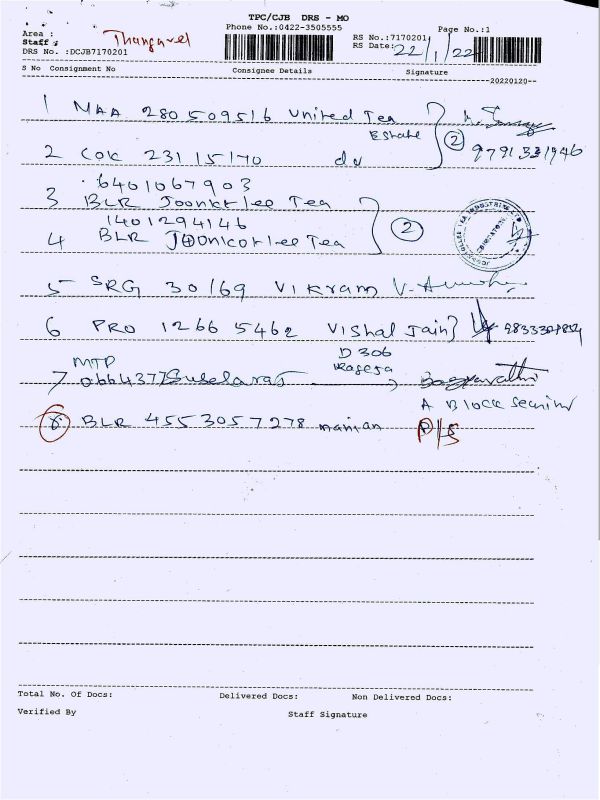 TPC/CJB DRS - MO
Phone No.:0422-3505555
Page No.:1
Area :
Staff : Thangavel
RS No.:7170201
RS Date: 22/1/22
DRS No. :DCJB7170201
S No Consignment No Consignee Details Signature
--20220120--
1 MAA 280509516 United Tea
Estate
2 COK 23115170 do (2) 9791331946
6401067903
3 BLR Joonktlee Tea
1401294146 (2)
4 BLR Joonktlee Tea
5 SRG 30169 Vikram
6 PRO 12665462 Vishal Jain
D 306
MTP
7
A Block Security
8 BLR 4553057278 manian P/S
Total No. Of Docs: Delivered Docs: Non Delivered Docs:
Verified By Staff Signature